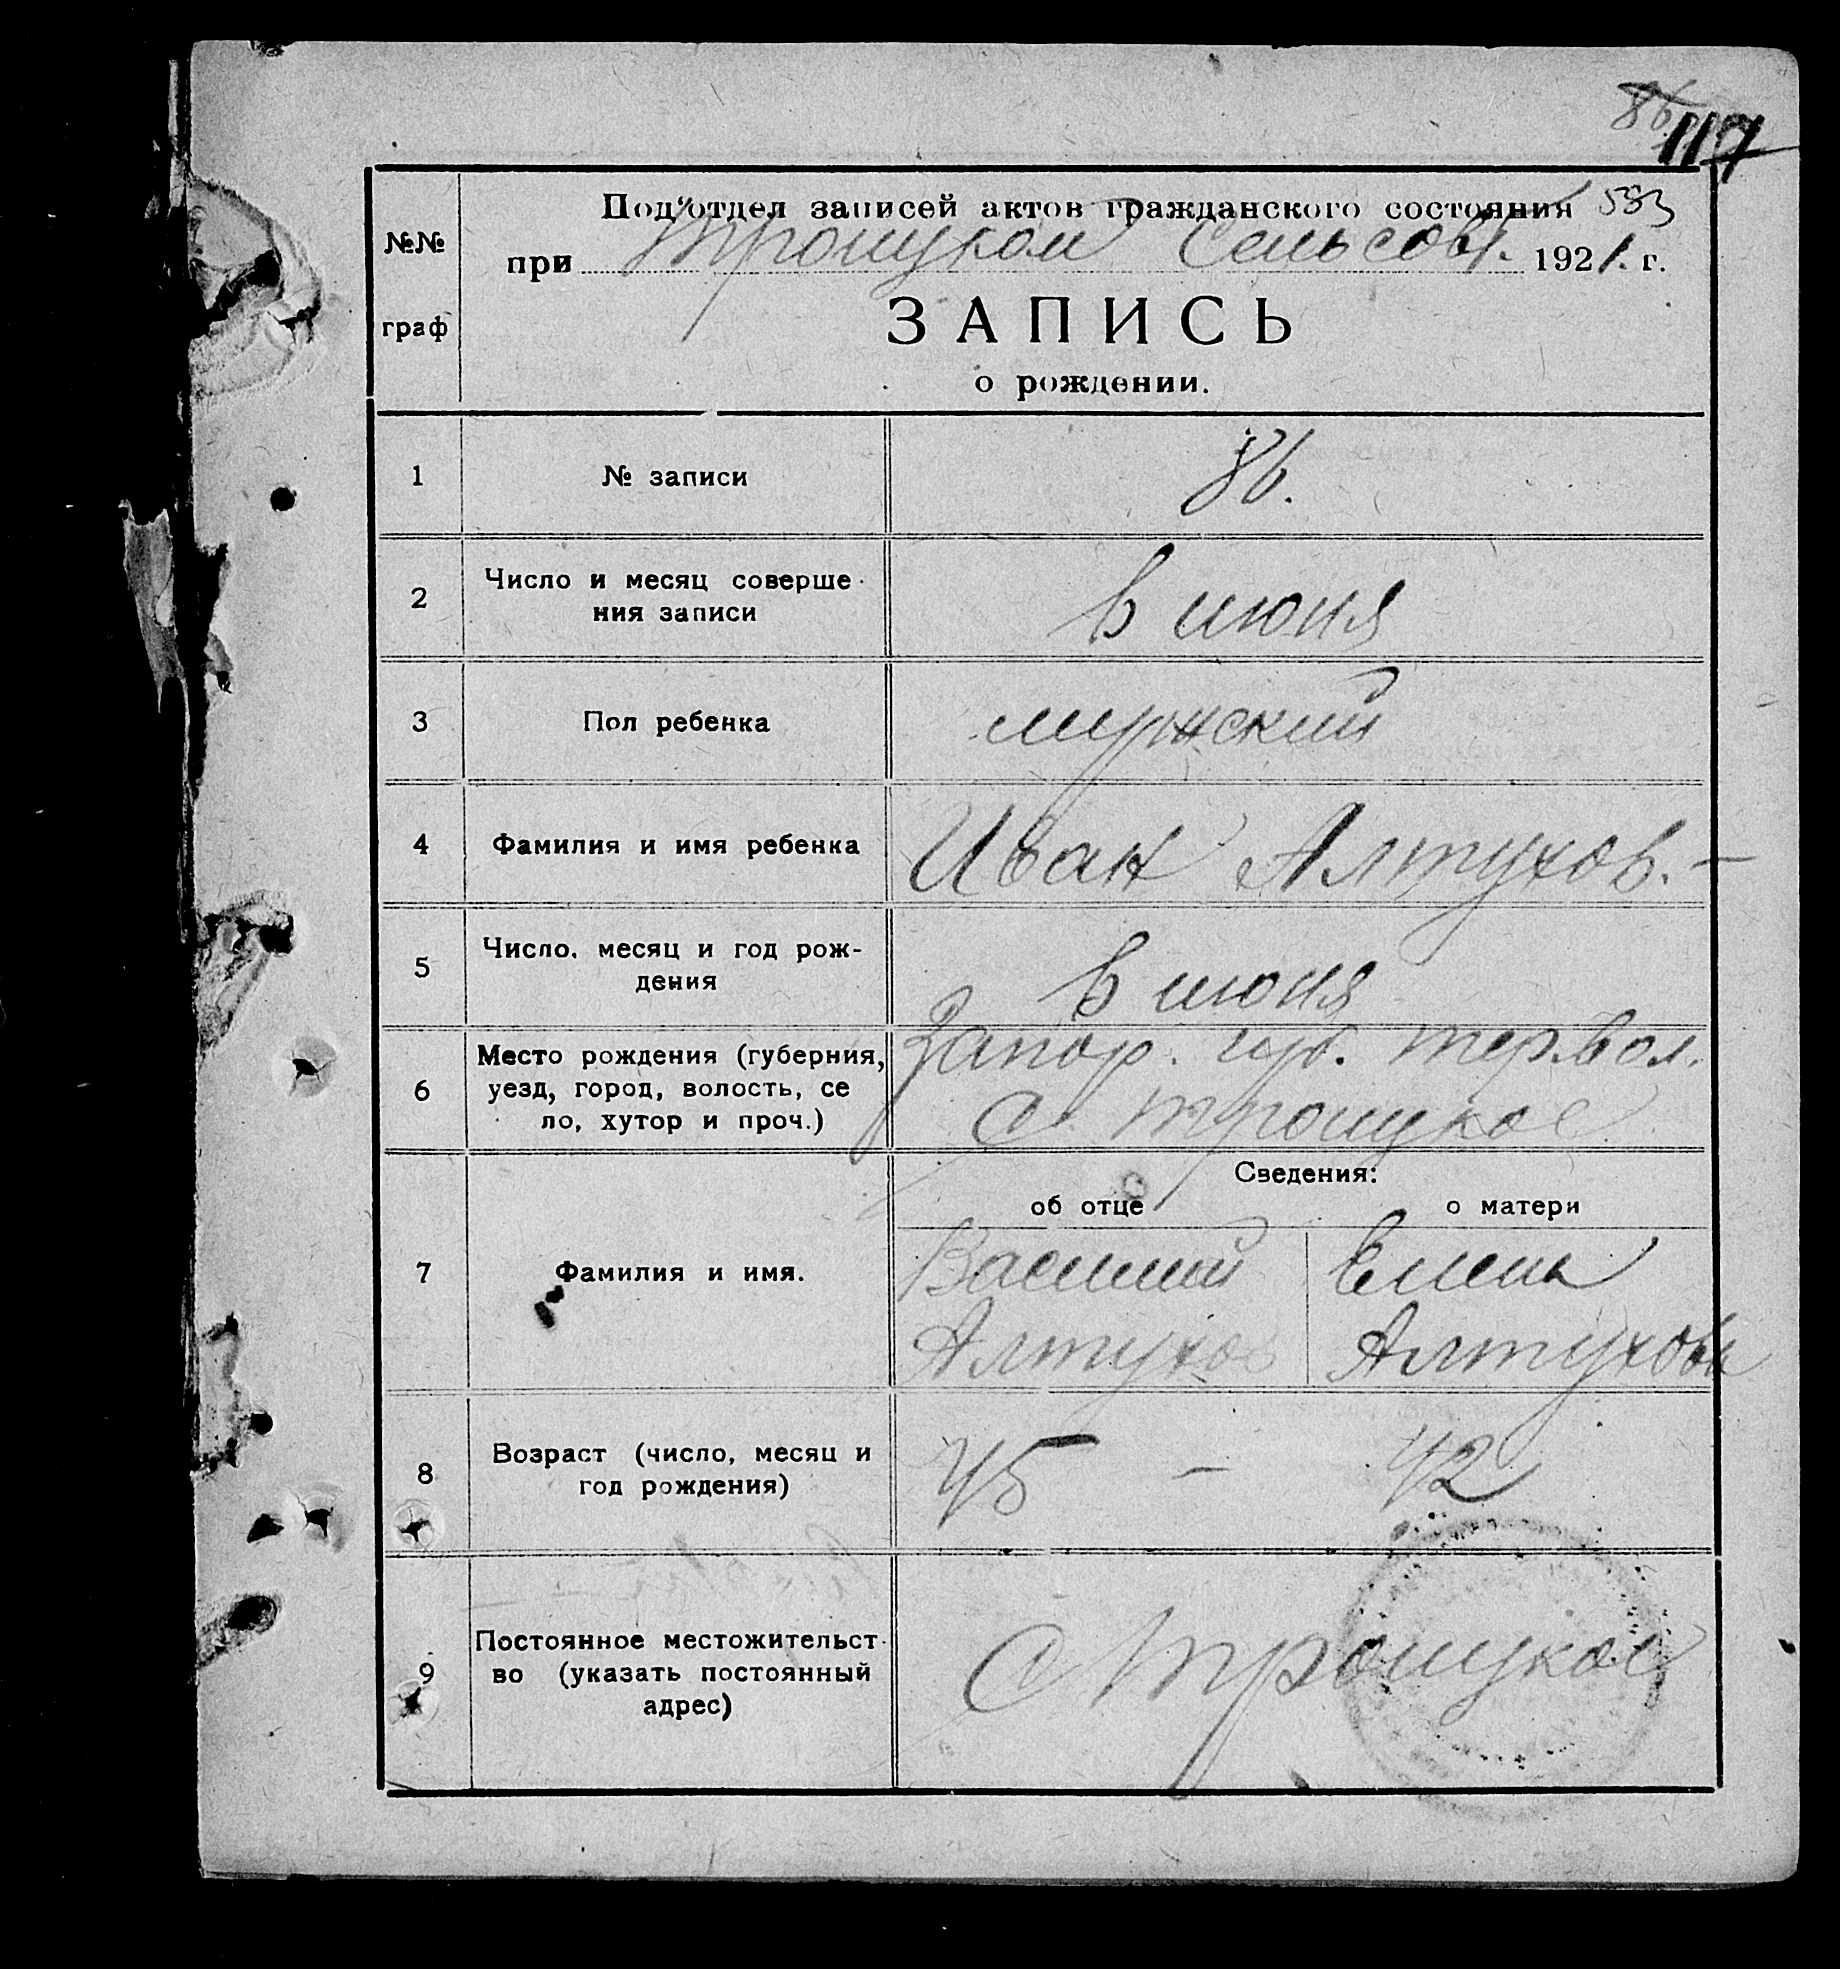 86
117
583
Под'отдел записей актов гражданского состояния
при Троицком Сельсов. 1921. г.
№№ граф
ЗАПИСЬ
о рождении.
1 № записи 86.
2 Число и месяц соверше
ния записи 6 июня
3 Пол ребенка мужский
4 Фамилия и имя ребенка Иван Алтухов. —
5 Число, месяц и год рож-
дения 6 июня
6 Место рождения (губерния, Запор. губ. тер. вол.
уезд, город, волость, се
ло, хутор и проч.) С. Троицкое
Сведения:
об отце о матери
7 Фамилия и имя. Василий Елена
Алтухов Алтухова
8 Возраст (число, месяц и
год рождения) 45 — 42
9 Постоянное местожительст-
во (указать постоянный
адрес) С Троицкое